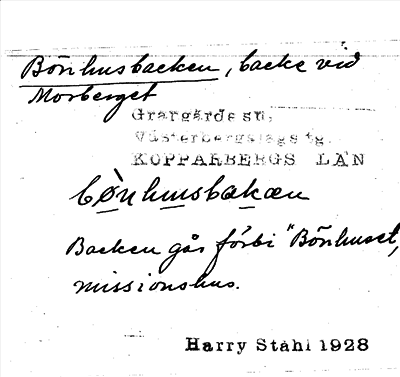 Bönhusbacken, backe vid
Morberget
Grangärde sn,
Västerbergslags tg.
KOPPARBERGS LÄN
bö̀nhusbakæn
Backen går förbi "Bönhuset,
missionshus.
Harry Ståhl 1928